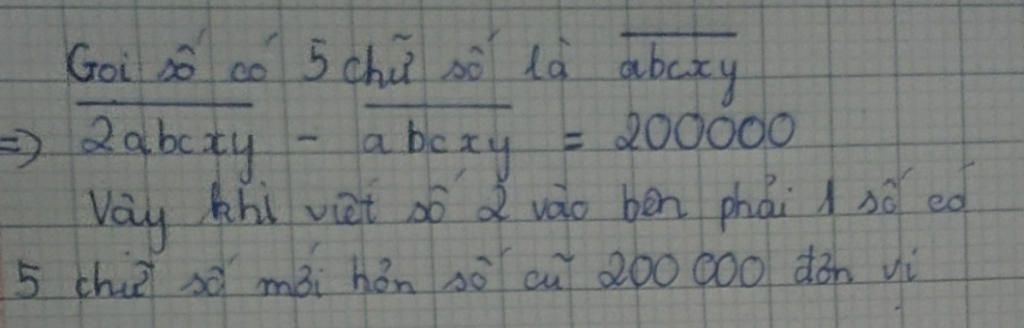 Gọi số có 5 chữ số là abcxy
=> 2abcxy - abcxy = 200000
Vậy khi viết số 2 vào bên phải 1 số có
5 chữ số mới hơn số cũ 200 000 đơn vị